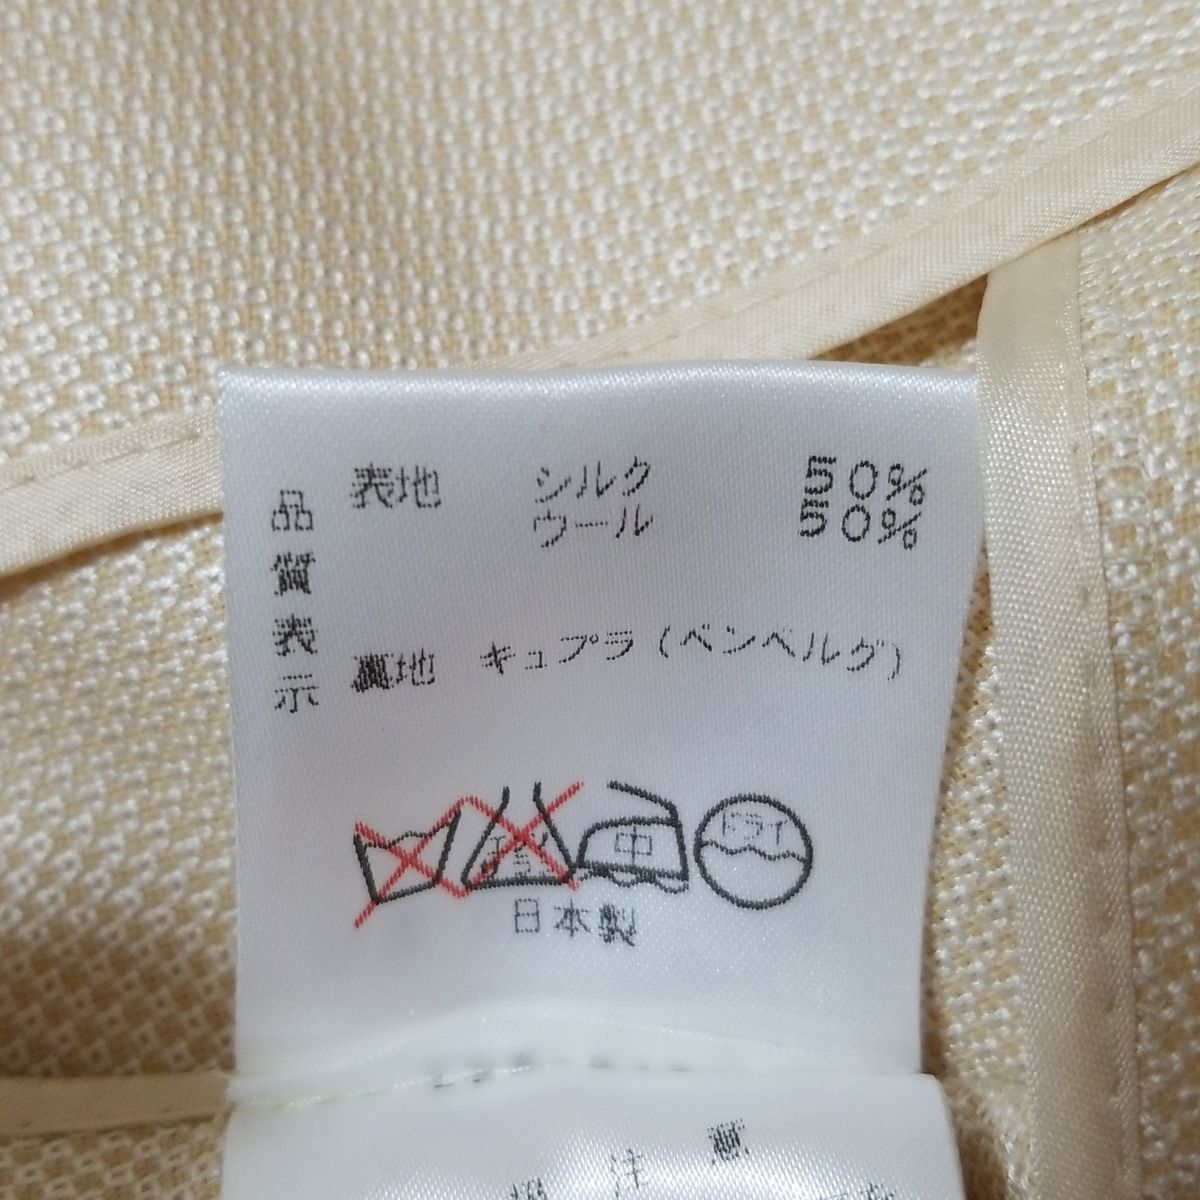 品質表示
表地 シルク 50%
ウール 50%
裏地 キュプラ(ベンベルグ)
エンソ
ラ
中
ドライ
日本製
注意